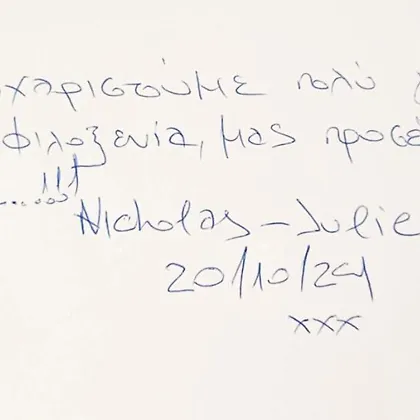 χαριστούμε πολύ
φιλοξενία, μας προσέ
.......!!!
Nicholas - Julie
20/10/24
xxx